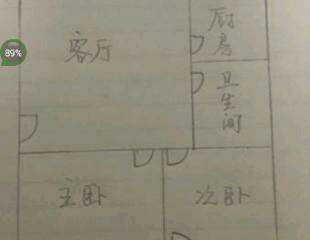 厨房
客厅
89%
卫生间
主卧
次卧